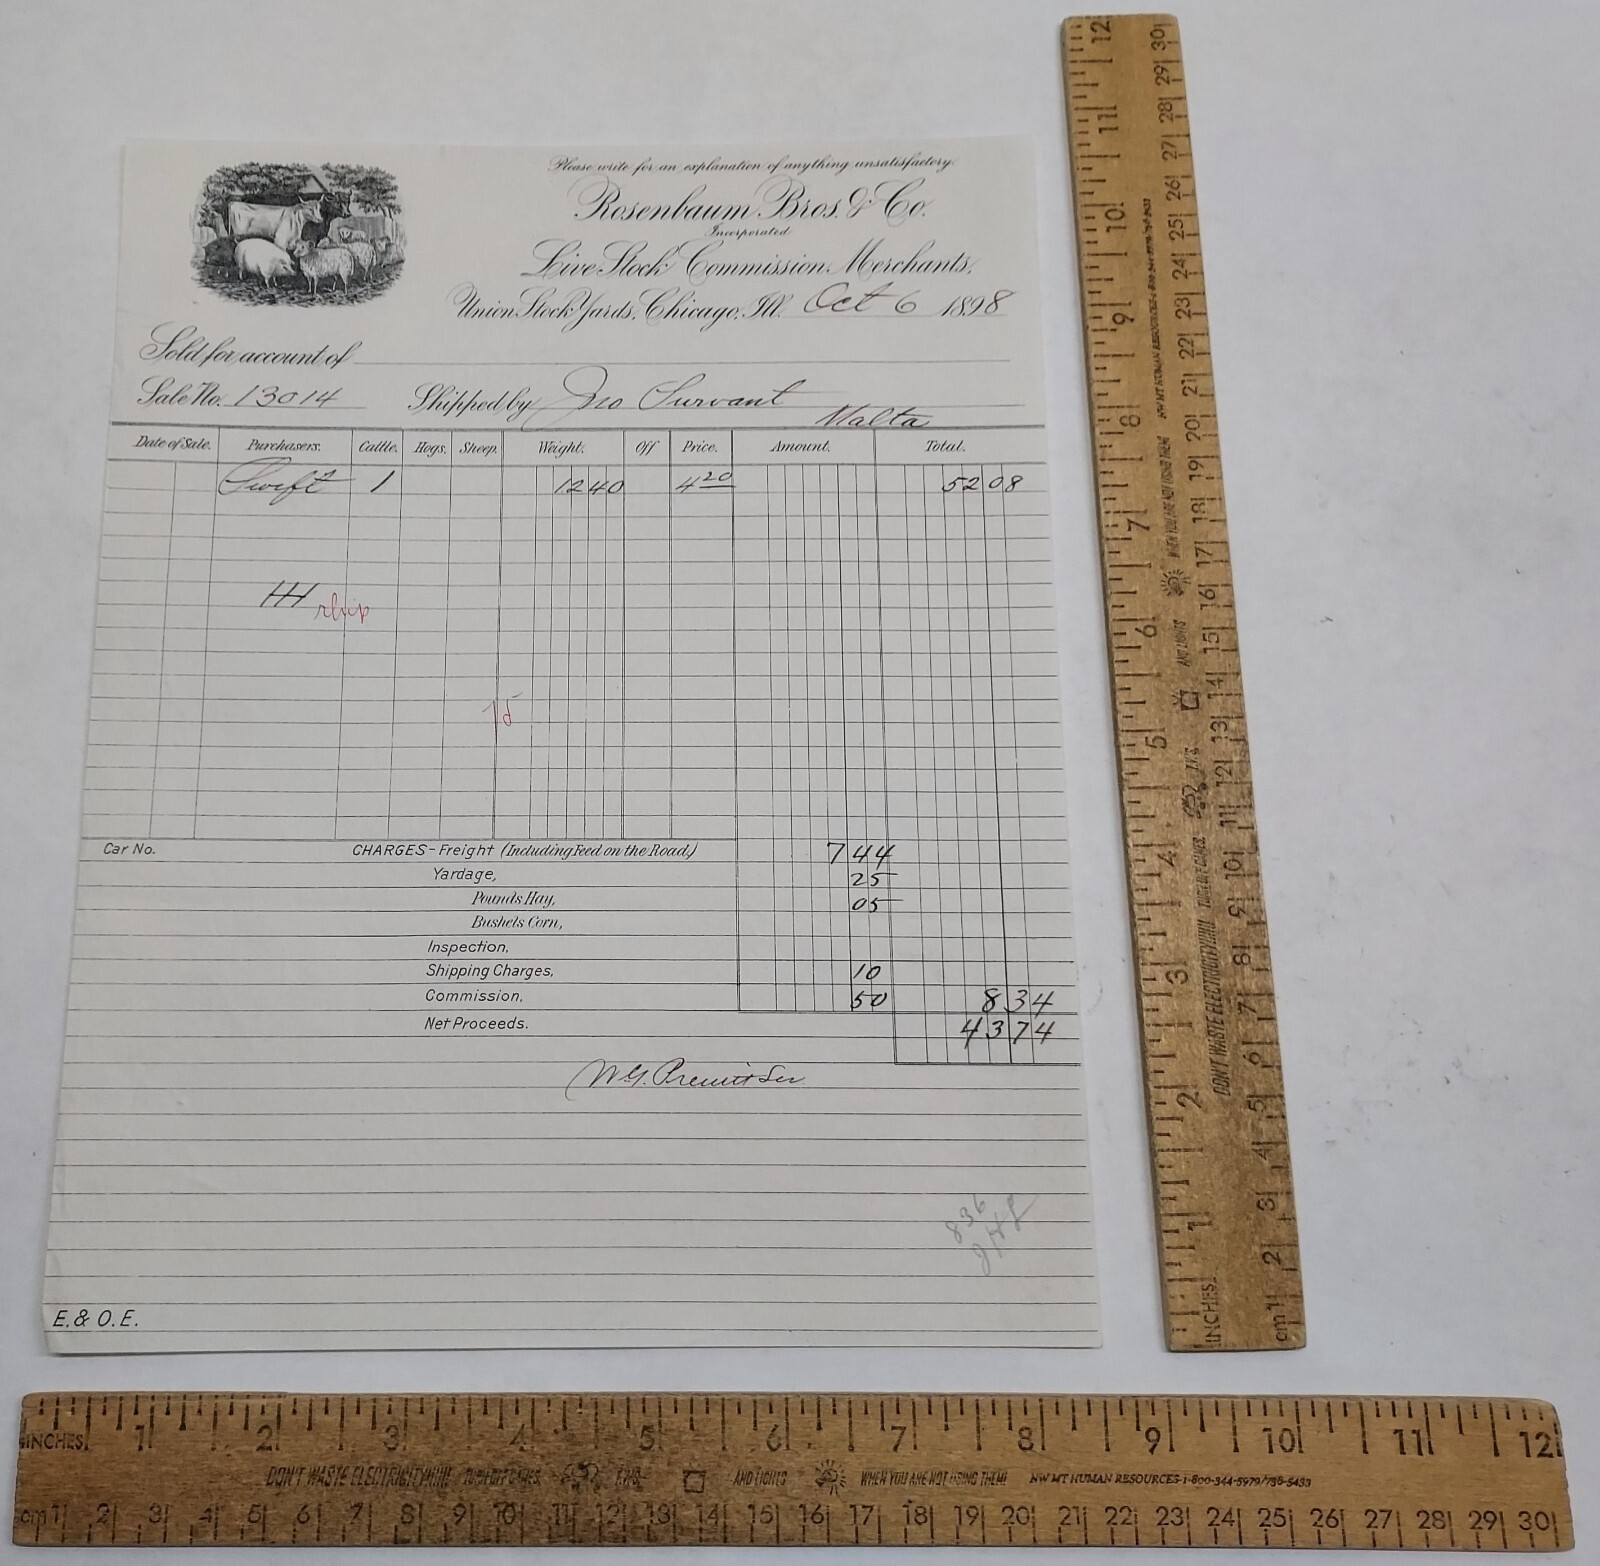 Please write for an explanation of anything unsatisfactory.
Rosenbaum Bros. & Co.
Incorporated
Live Stock Commission Merchants,
Union Stock Yards, Chicago, Ill. Oct 6 1898
Sold for account of
Sale No. 13014 Shipped by Jno Survant
Malta
Date of Sale. Purchasers. Cattle. Hogs. Sheep. Weight. Off Price. Amount. Total.
Swift 1 1240 4 20 52 08
Car No. CHARGES-Freight (Including Feed on the Road,) 7 44
Yardage, 25
Pounds Hay, 05
Bushels Corn,
Inspection,
Shipping Charges, 10
Commission, 50 8 34
Net Proceeds. 43 74
836
E. & O. E.
INCHES 1 2 3 4 5 6 7 8 9 10 11 12
DON'T WASTE ELECTRICITY!!!!! TURN OFF GAMES, T.V.S. AND LIGHTS WHEN YOU ARE NOT USING THEM! NW MT HUMAN RESOURCES-1-800-344-5979/758-5433
cm 1 2 3 4 5 6 7 8 9 10 11 12 13 14 15 16 17 18 19 20 21 22 23 24 25 26 27 28 29 30
INCHES 1 2 3 4 5 6 7 8 9 10 11 12
DON'T WASTE ELECTRICITY!!!!! TURN OFF GAMES, T.V.S. AND LIGHTS WHEN YOU ARE NOT USING THEM! NW MT HUMAN RESOURCES-1-800-344-5979/758-5433
cm 1 2 3 4 5 6 7 8 9 10 11 12 13 14 15 16 17 18 19 20 21 22 23 24 25 26 27 28 29 30